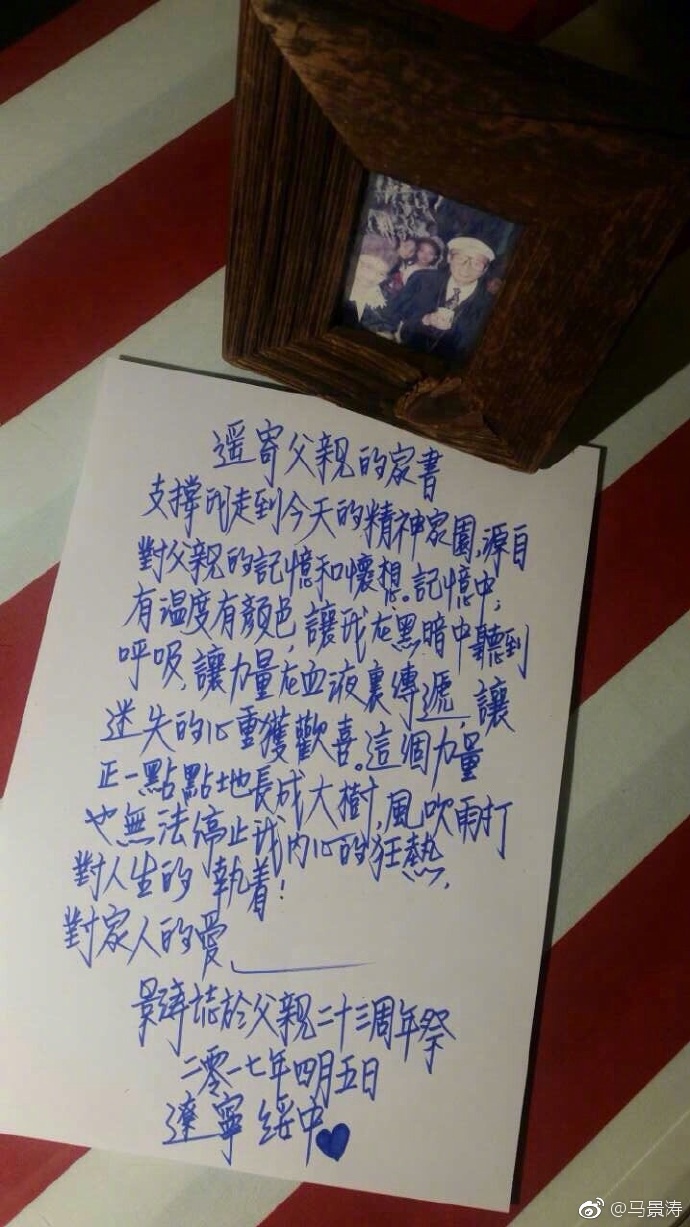 遥寄父親的家書
支撐我走到今天的精神家園,源自
對父親的記憶和懷想。記憶中,
有溫度有顏色,讓我在黑暗中聽到
呼吸,讓力量在血液裏傳遞,讓
迷失的心重獲歡喜。這個力量
正一點點地長成大樹,風吹雨打
也無法停止我內心的狂熱,
對人生的執着!
對家人的愛,
景濤誌於父親二十三周年祭
二零一七年四月五日
遼寧綏中
@马景涛